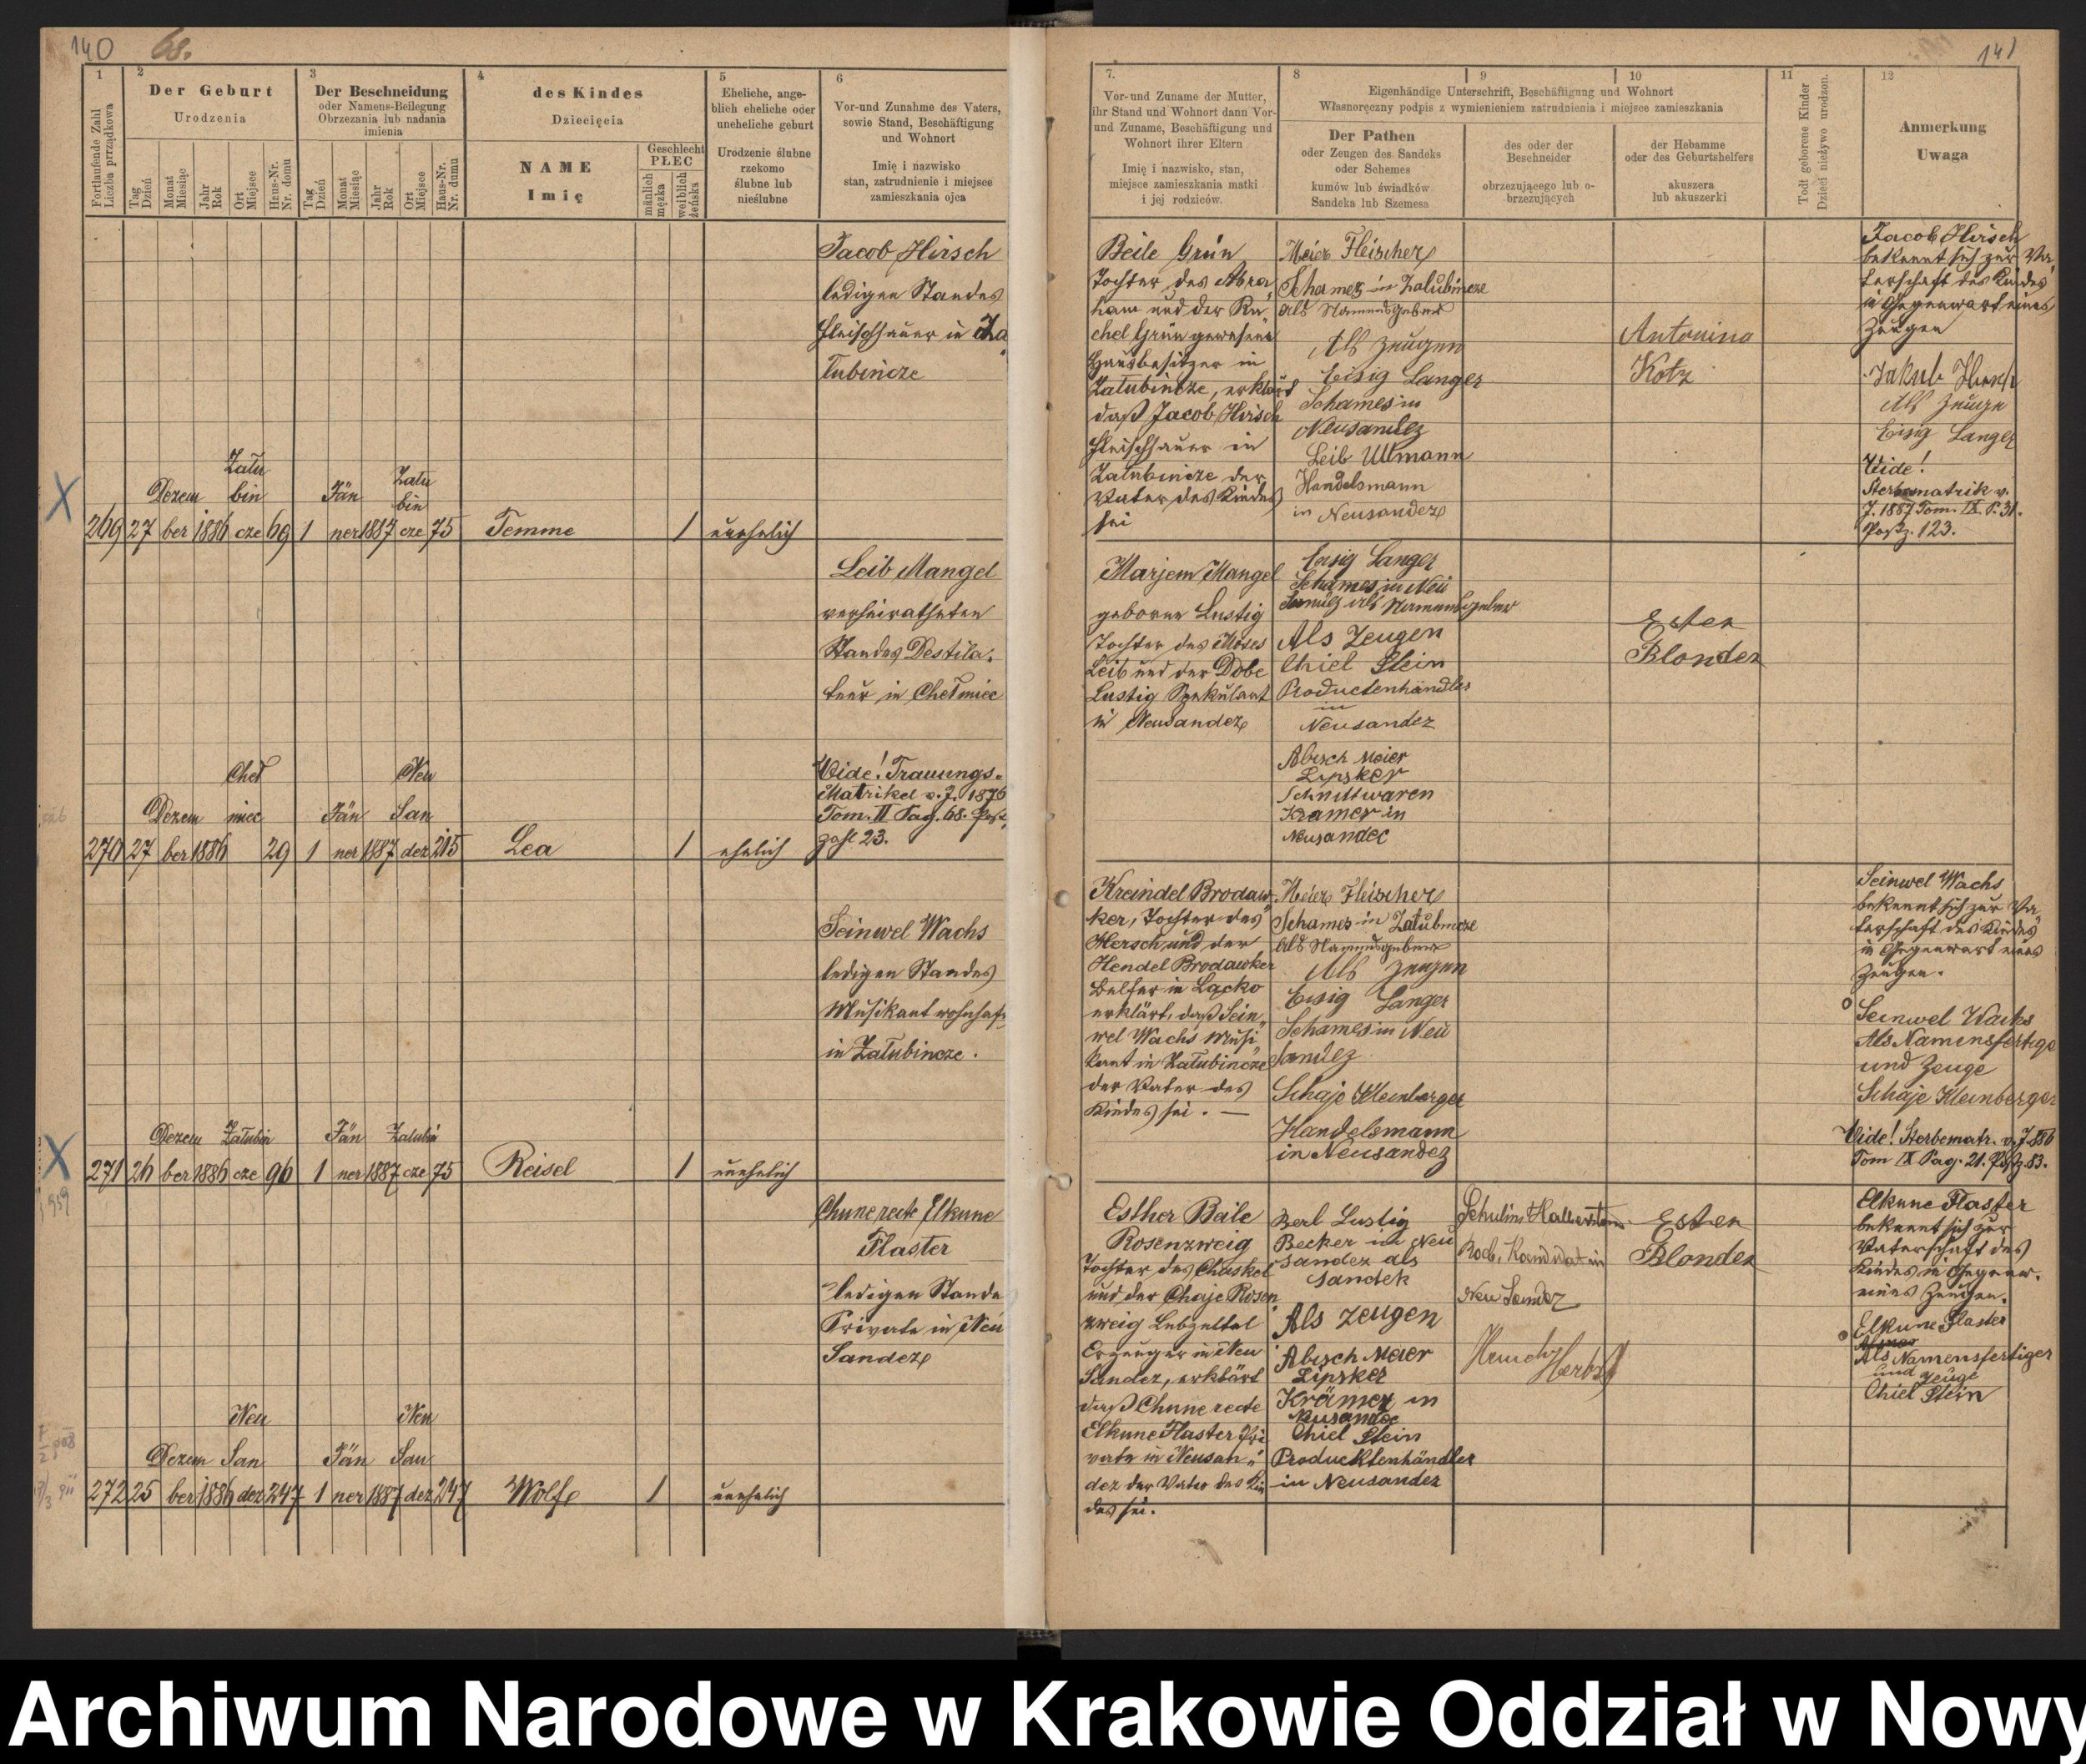 140 68.
1
2
3
4
5
6
Fortlaufende Zahl
Liczba prządkowa
Der Geburt
Urodzenia
Tag
Dzień
Monat
Miesiąc
Jahr
Rok
Ort
Miejsce
Haus-Nr.
Nr. domu
Der Beschneidung
oder Namens-Beilegung
Obrzezania lub nadania
imienia
Tag
Dzień
Monat
Miesiąc
Jahr
Rok
Ort
Miejsce
Haus-Nr.
Nr. dumu
des Kindes
Dziecięcia
NAME
Imię
Geschlecht
PŁEC
männlich
męzka
weiblich
żeńska
Eheliche, ange-
blich eheliche oder
uneheliche geburt
Urodzenie ślubne
rzekomo
ślubne lub
nieślubne
Vor-und Zunahme des Vaters,
sowie Stand, Beschäftigung
und Wohnort
Imię i nazwisko
stan, zatrudnienie i miejsce
zamieszkania ojca
Jacob Hirsch
ledigen Standes
Fleischhauer in Za
łubincze
Zału Zału
Dezem bin Jän bin
269 27 ber 1886 cze 69 1 ner 1887 cze 75 Temme 1 unehelich
Leib Mangel
verheiratheten
Standes Destila-
teur in Chełmiec
Vide! Trauungs-
Matrikel v. J. 1876
Tom. II Pag. 68. Post
zahl 23.
Cheł Neu
Dezem miec Jän San
270 27 ber 1886 29 1 ner 1887 dez 215 Lea 1 ehelich
Seinwel Wachs
ledigen Standes
Musikant wohnhaft
in Załubincze.
Dezem Załubin Jän Załubin
271 26 ber 1886 cze 96 1 ner 1887 cze 75 Reisel 1 unehelich
Chune recte Elkune
Flaster
ledigen Stande
Private in Neu
Sandez
Neu Neu
Dezem San Jän San
272 25 ber 1886 dez 247 1 ner 1887 dez 247 Wolf 1 unehelich
141
7.
8
9
10
11
12
Vor-und Zuname der Mutter,
ihr Stand und Wohnort dann Vor-
und Zuname, Beschäftigung und
Wohnort ihrer Eltern
Imię i nazwisko, stan,
miejsce zamieszkania matki
i jej rodziców.
Eigenhändige Unterschrift, Beschäftigung und Wohnort
Własnoręczny podpis z wymienieniem zatrudnienia i miejsce zamieszkania
Der Pathen
oder Zeugen des Sandeks
oder Schemes
kumów lub świadków
Sandeka lub Szemesa
des oder der
Beschneider
obrzezującego lub o-
brzezujących
der Hebamme
oder des Geburtshelfers
akuszera
lub akuszerki
Todt geborene Kinder
Dzieci nieżywo urodzon.
Anmerkung
Uwaga
Beile Grün
Tochter des Abra
ham und der Ra
chel Grün gewesene
Hausbesitzer in
Załubincze, erklärt
daß Jacob Hirsch
Fleischhauer in
Załubincze der
Vater des Kindes
sei
Meier Fleischer
Schames in Załubincze
als Namensgeber
Als Zeugen
Eisig Langer
Schames in
Neusandez
Leib Ullmann
Handelsmann
in Neusandez
Antonina
Kotz
Jacob Hirsch
bekennt sich zur Va
terschaft des Kindes
in Gegenwart eines
Zeugen
Jakub Hirsch
Als Zeuge
Eisig Langer
Vide!
Sterbematrik v.
J. 1887 Tom. IX. P. 31.
Postz. 123.
Marjem Mangel
geborne Lustig
Tochter des Moses
Leib und der Dobe
Lustig Spekulant
in Neusandez
Eisig Langer
Schames in Neu
Sandez als Namensgeber
Als Zeugen
Chiel Stein
Productenhändler
in
Neusandez
Abisch Meier
Lipsker
Schnittwaren
Kramer in
Neusandec
Ester
Blonder
Kreindel Brodaw
ker, Tochter des
Hersch und der
Hendel Brodawker
Belfer in Łącko
erklärt, daß Sein
wel Wachs Musi
kant in Załubincze
der Vater des
Kindes sei. —
Meier Fleischer
Schames in Załubincze
als Namensgeber
Als Zeugen
Eisig Langer
Schames in Neu
Sandez
Schaje Kleinberger
Handelsmann
in Neusandez
Seinwel Wachs
bekennt sich zur Va
terschaft des Kindes
in Gegenwart eines
Zeugen.
Seinwel Wachs
Als Namensfertiger
und Zeuge
Schaje Kleinberger
Vide! Sterbematr. v. J. 886
Tom IX Pag. 21. Postz. 83.
Esther Baile
Rosenzweig
Tochter des Chaskel
und der Chaje Rosen
zweig Lebzeltel
Erzeuger in Neu
Sandez, erklärt
daß Chune recte
Elkune Flaster Pri
vate in Neusan
dez der Vater des Kin
des sei.
Berl Lustig
Becker in Neu
Sandez als
Sandek
Als Zeugen
Abisch Meier
Lipsker
Krämer in
Neusandec
Chiel Stein
Producktenhändler
in Neusandez
Schulim Halberstam
Rab. Kandidat in
Neu Sandez
Herbst
Ester
Blonder
Elkune Flaster
bekennt sich zur
Vaterschaft des
Kindes in Gegenw.
eines Zeugen.
Elkune Flaster
Als Namensfertiger
und Zeuge
Chiel Stein
Archiwum Narodowe w Krakowie Oddział w Nowy